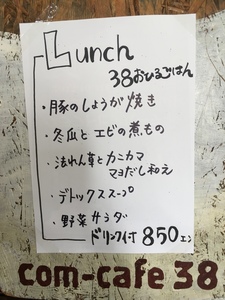 Lunch
38おひるごはん
・豚のしょうが焼き
・冬瓜とエビの煮もの
・法れん草とカニカマ
マヨだし和え
・デトックススープ
・野菜サラダ
ドリンク付 850エン
com-cafe 38